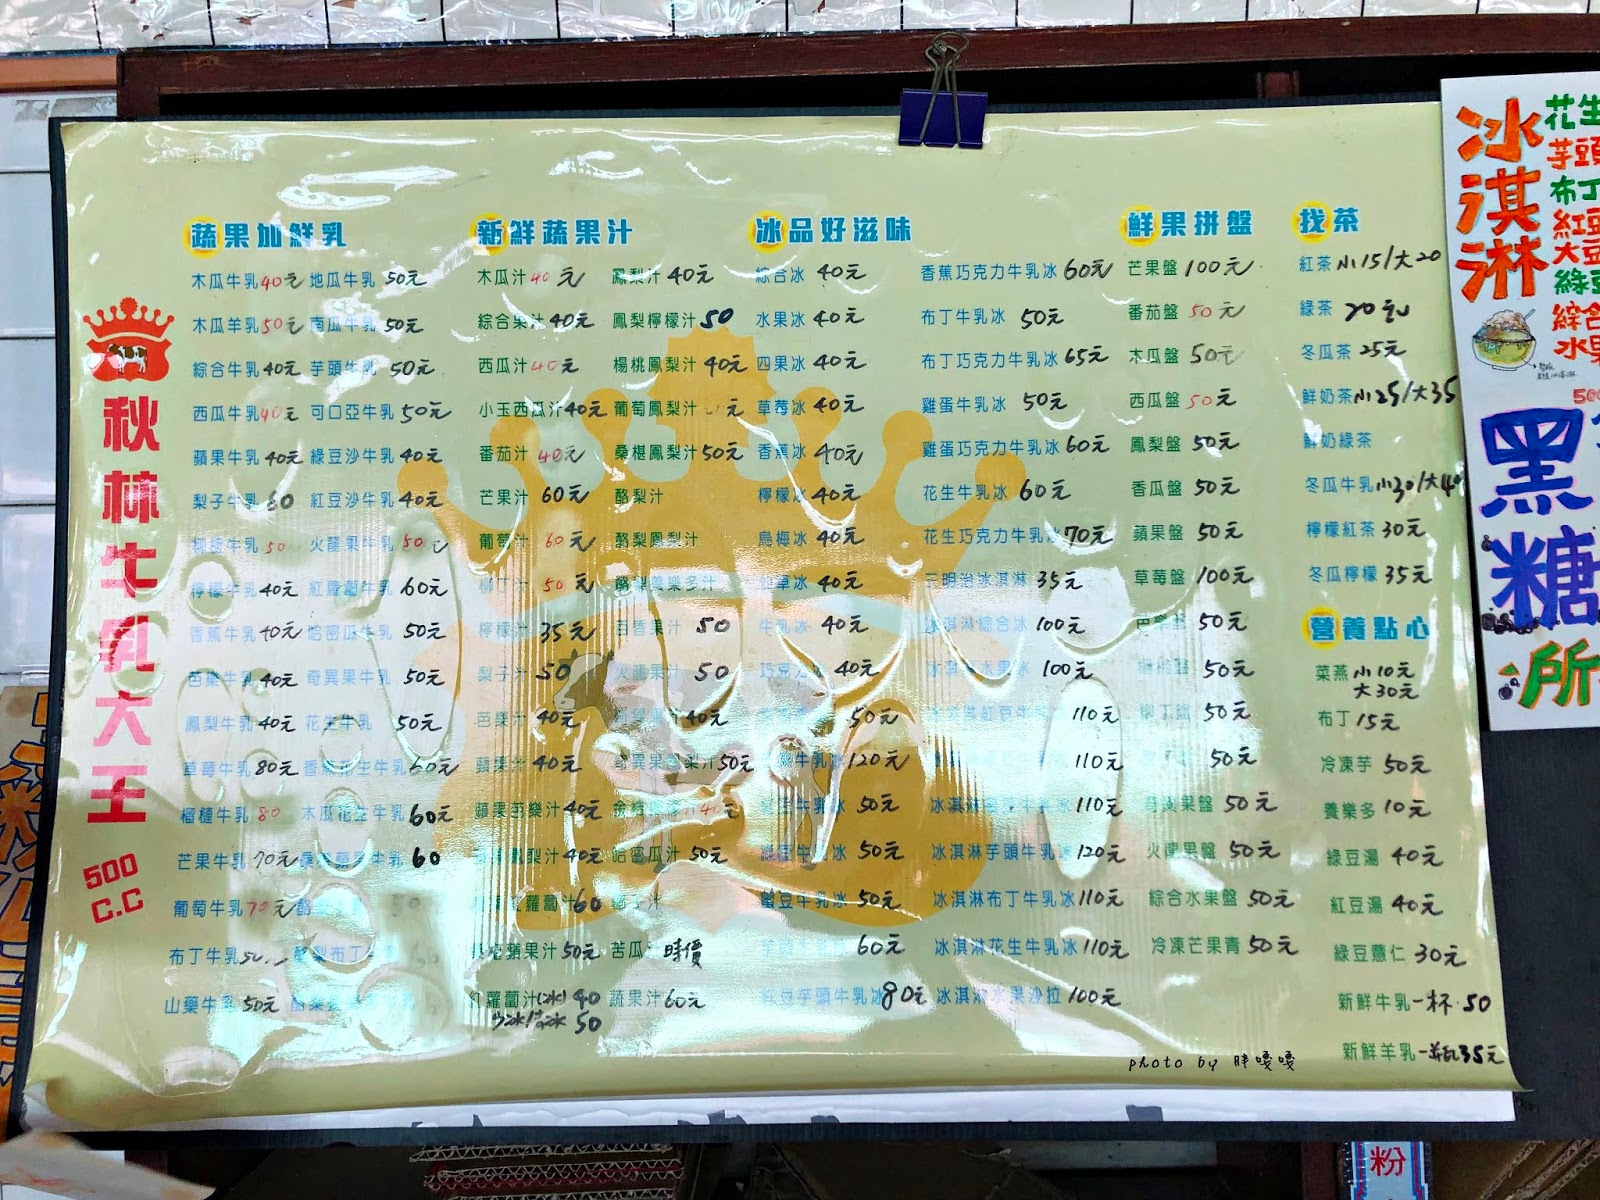 秋林牛乳大王
500
C.C
蔬果加鮮乳
木瓜牛乳 40元 地瓜牛乳 50元
木瓜羊乳 50元 南瓜牛乳 50元
綜合牛乳 40元 芋頭牛乳 50元
西瓜牛乳 40元 可口亞牛乳 50元
蘋果牛乳 40元 綠豆沙牛乳 40元
梨子牛乳 60 紅豆沙牛乳 40元
柳橙牛乳 50 火龍果牛乳 50元
檸檬牛乳 40元 紅蘿蔔牛乳 60元
香蕉牛乳 40元 哈密瓜牛乳 50元
芭樂牛乳 40元 奇異果牛乳 50元
鳳梨牛乳 40元 花生牛乳 50元
草莓牛乳 80元 香蕉花生牛乳 60元
榴槤牛乳 80 木瓜花生牛乳 60元
芒果牛乳 70元 牛乳 60
葡萄牛乳 70元 酪 50
布丁牛乳 50 酪梨布丁牛
山藥牛乳 50元
新鮮蔬果汁
木瓜汁 40元 鳳梨汁 40元
綜合果汁 40元 鳳梨檸檬汁 50
西瓜汁 40元 楊桃鳳梨汁 40元
小玉西瓜汁 40元 葡萄鳳梨汁 元
番茄汁 40元 桑椹鳳梨汁 50元
芒果汁 60元 酪梨汁
葡萄汁 60元 酪梨鳳梨汁
柳丁汁 50元 酪梨養樂多汁
檸檬汁 35元 百香果汁 50
梨子汁 50 火龍果汁 50
芭樂汁 40元 汁 40元
蘋果汁 40元 奇異果鳳梨汁 50元
蘋果芭樂汁 40元 金桔檸檬汁 40元
鳳梨汁 40元 哈密瓜汁 50元
紅蘿蔔汁 60 汁
蘋果汁 50元 苦瓜汁 時價
紅蘿蔔汁(冰) 40 蔬果汁 60元
冰 50
冰品好滋味
綜合冰 40元 香蕉巧克力牛乳冰 60元
水果冰 40元 布丁牛乳冰 50元
四果冰 40元 布丁巧克力牛乳冰 65元
草莓冰 40元 雞蛋牛乳冰 50元
香蕉冰 40元 雞蛋巧克力牛乳冰 60元
檸檬冰 40元 花生牛乳冰 60元
烏梅冰 40元 花生巧克力牛乳冰 70元
仙草冰 40元 三明治冰淇淋 35元
牛乳冰 40元 冰淇淋綜合冰 100元
巧克力冰 40元 冰淇淋水果冰 100元
50元 冰淇淋紅豆牛乳冰 110元
牛乳冰 120元 110元
牛乳冰 50元 冰淇淋 牛乳冰 110元
綠豆牛乳冰 50元 冰淇淋芋頭牛乳冰 120元
蜜豆牛乳冰 50元 冰淇淋布丁牛乳冰 110元
60元 冰淇淋花生牛乳冰 110元
紅豆芋頭牛乳冰 80元 冰淇淋水果沙拉 100元
鮮果拼盤
芒果盤 100元
番茄盤 50元
木瓜盤 50元
西瓜盤 50元
鳳梨盤 50元
香瓜盤 50元
蘋果盤 50元
草莓盤 100元
芭樂盤 50元
50元
柳丁盤 50元
50元
奇異果盤 50元
火龍果盤 50元
綜合水果盤 50元
冷凍芒果青 50元
找茶
紅茶 小15/大20
綠茶 20元
冬瓜茶 25元
鮮奶茶 小25/大35
鮮奶綠茶
冬瓜牛乳 小30/大40
檸檬紅茶 30元
冬瓜檸檬 35元
營養點心
菜燕 小10元
大30元
布丁 15元
冷凍芋 50元
養樂多 10元
綠豆湯 40元
紅豆湯 40元
綠豆薏仁 30元
新鮮牛乳 一杯 50
新鮮羊乳 一瓶35元
photo by 胖嘎嘎
冰淇淋
花生
芋頭
布丁
紅豆
大豆
綠豆
綜合
水果
500
黑糖
所
粉